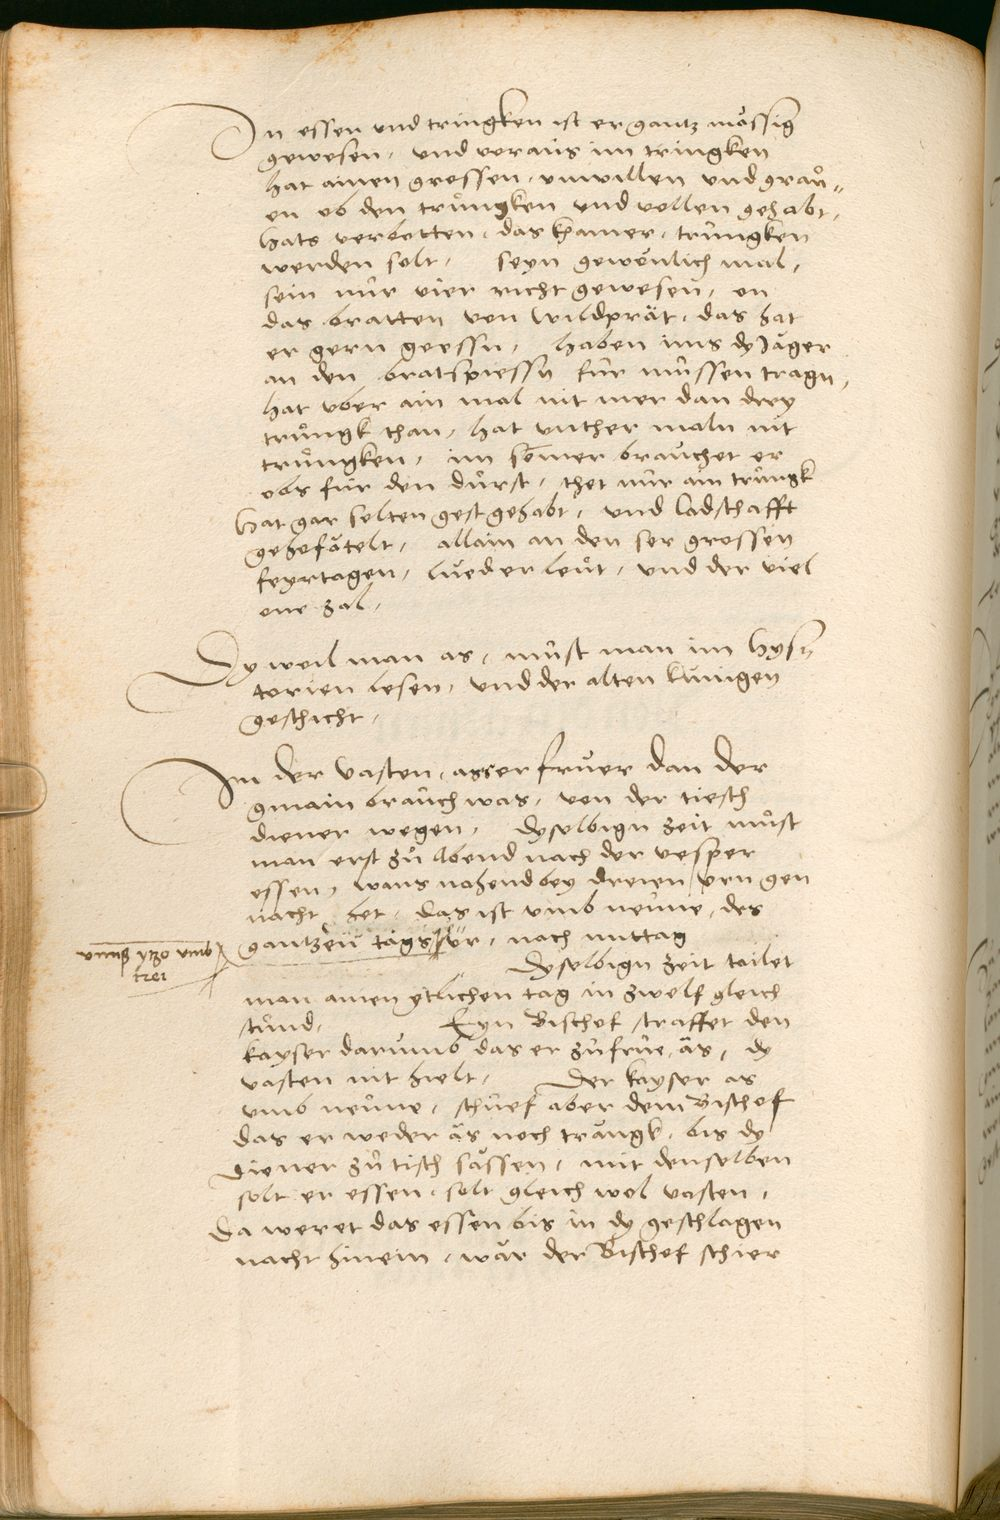 In essen vnd tringken ist er gantz mässig
gewesen, vnd voraus im tringken
hat ainen grossen vnwillen vnd graů„
en ob den trůngken vnd vollen gehabt,
hats verbotten, das khainer trůngken
werden solt, seyn gewönlich mal,
sein nůr vier richt gewesen, on
das bratten von wildprät, das hat
er gern geessn, haben ims dy Jäger
an den bratspiessn für můssen tragn,
hat vber ain mal nit mer dan drey
trůngk than, hat vnther maln nit
trůngken, im som̄er brauchet er
obs für den důrst, thet nůr ain trůngk
Hat gar selten gest gehabt, vnd ladschafft
gehefätelt, allain an den ser grossen
feyrtagen, lůed er leůt, vnd der viel
one zal,
Dy weil man as, můst man im hys„
torien lesen, vnd der alten kůnigen
geschicht,
Im der vasten, ass er frůer dan der
gmain braůch was, von der tiesch
diener wegen, dyselbign zeit můst
man erst zů Abend nach der vesper
essen, wans nahend bey dreien vrn gen
nacht het, das ist vmb neůne, des
gantzen tags vr, nach mittag
vnnß yzo vmb
trei
dyselbign zeit tailet
man ainen ytlichen tag in zwelf gleich
stůnd, Eyn Bischof straffet den
kayser darůmb das er zů frůe äs, dy
vasten nit hielt, Der kayser as
vmb neůne, schůef aber dem Bischof
das er weder äs noch trängk, bis dy
diener zů tisch sässen, mit denselben
solt er essen, solt gleich wol vasten,
Da weret das essen bis in dy geschlagen
nacht hinein, wär der Bischof schier